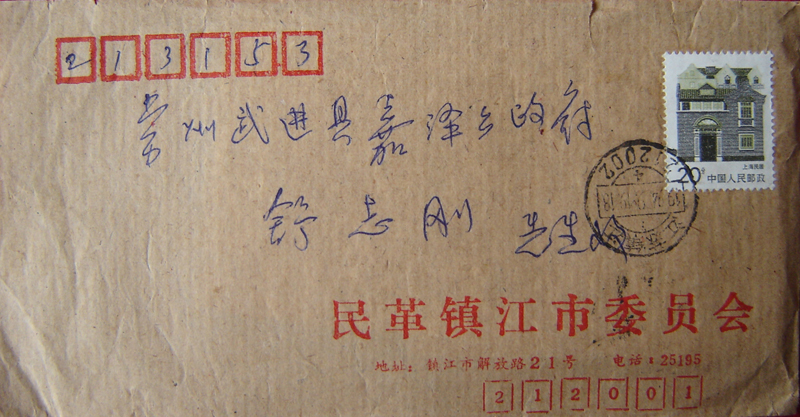 213153
常州武进县嘉泽乡政府
舒志刚 先生收
上海民居
20分 中国人民邮政
212002
民革镇江市委员会
地址：镇江市解放路21号 电话：25195
212001